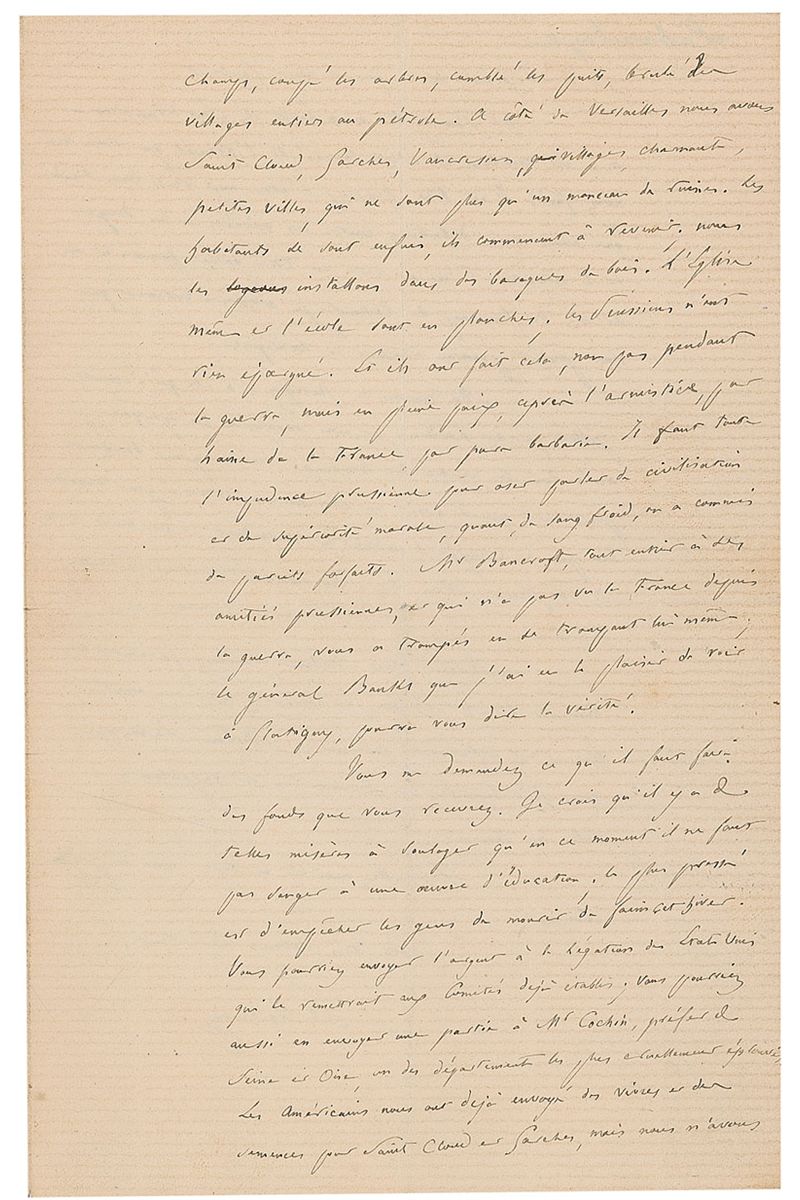 champs, coupé les arbres, comblé les puits, brulé des
villages entiers au pétrole. A côté de Versailles nous avons
Saint Cloud, Garches, Vaucresson, villages charmants,
petites villes, qui ne sont plus qu'un monceau de ruines. Les
habitants se sont enfuis, ils commencent à revenir. nous
les installons dans des baraques de bois. L'Eglise
même et l'école sont en planches. les Prussiens n'ont
rien épargné. Et ils ont fait cela, non pas pendant
la guerre, mais en pleine paix, après l'armistice, par
haine de la France, par pure barbarie. Il faut toute
l'impudence prussienne pour oser parler de civilisation
et de supériorité morale, quand, de sang froid, on a commis
de pareils forfaits. Mr Bancroft, tout entier à ses
amitiés prussiennes, et qui n'a pas vu la France depuis
la guerre, vous a trompés en se trompant lui même,
le général Banks que j'ai eu le plaisir de voir
à Glatigny, pourra vous dire la vérité.
Vous me demandez ce qu'il faut faire
des fonds que vous recevrez. Je crois qu'il y a de
telles misères à soulager qu'en ce moment il ne faut
pas songer à une œuvre d'éducation. le plus pressé
est d'empêcher les gens de mourir de faim cet hiver.
Vous pourriez envoyer l'argent à la Légation des Etats Unis
qui le remettrait aux Comités déjà établis. Vous pourriez
aussi en envoyer une partie à Mr Cochin, préfet de
Seine et Oise, un des départements les plus cruellement éprouvés,
Les Américains nous ont déjà envoyé des vivres et des
semences pour Saint Cloud et Garches, mais nous n'avons